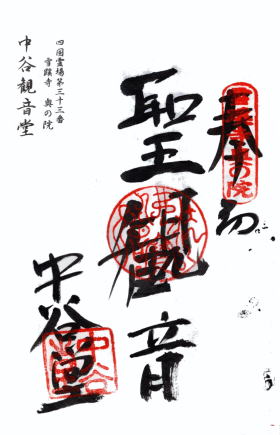 奉納
聖観音
中谷堂
四国霊場第三十三番
雪蹊寺 奥の院
中谷観音堂